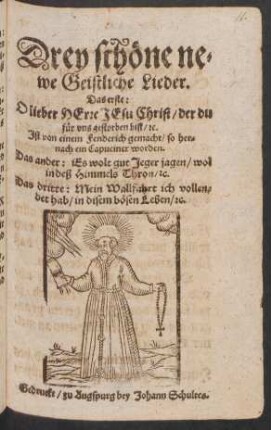 Drey schöne ne-
we Geistliche Lieder.
Das erste:
O lieber HErre JEsu Christ/ der du
für vns gestorben bist/ ꝛc.
Ist von einem Fenderich gemacht/ so her-
nach ein Capuciner worden.
Das ander: Es wolt gut Jeger jagen/ wol
in deß Himmels Thron/ ꝛc.
Das dritte: Mein Wallfahrt ich vollen-
det hab/ in disem bösen Leben/ ꝛc.
Gedruckt/ zu Augspurg bey Johann Schultes.